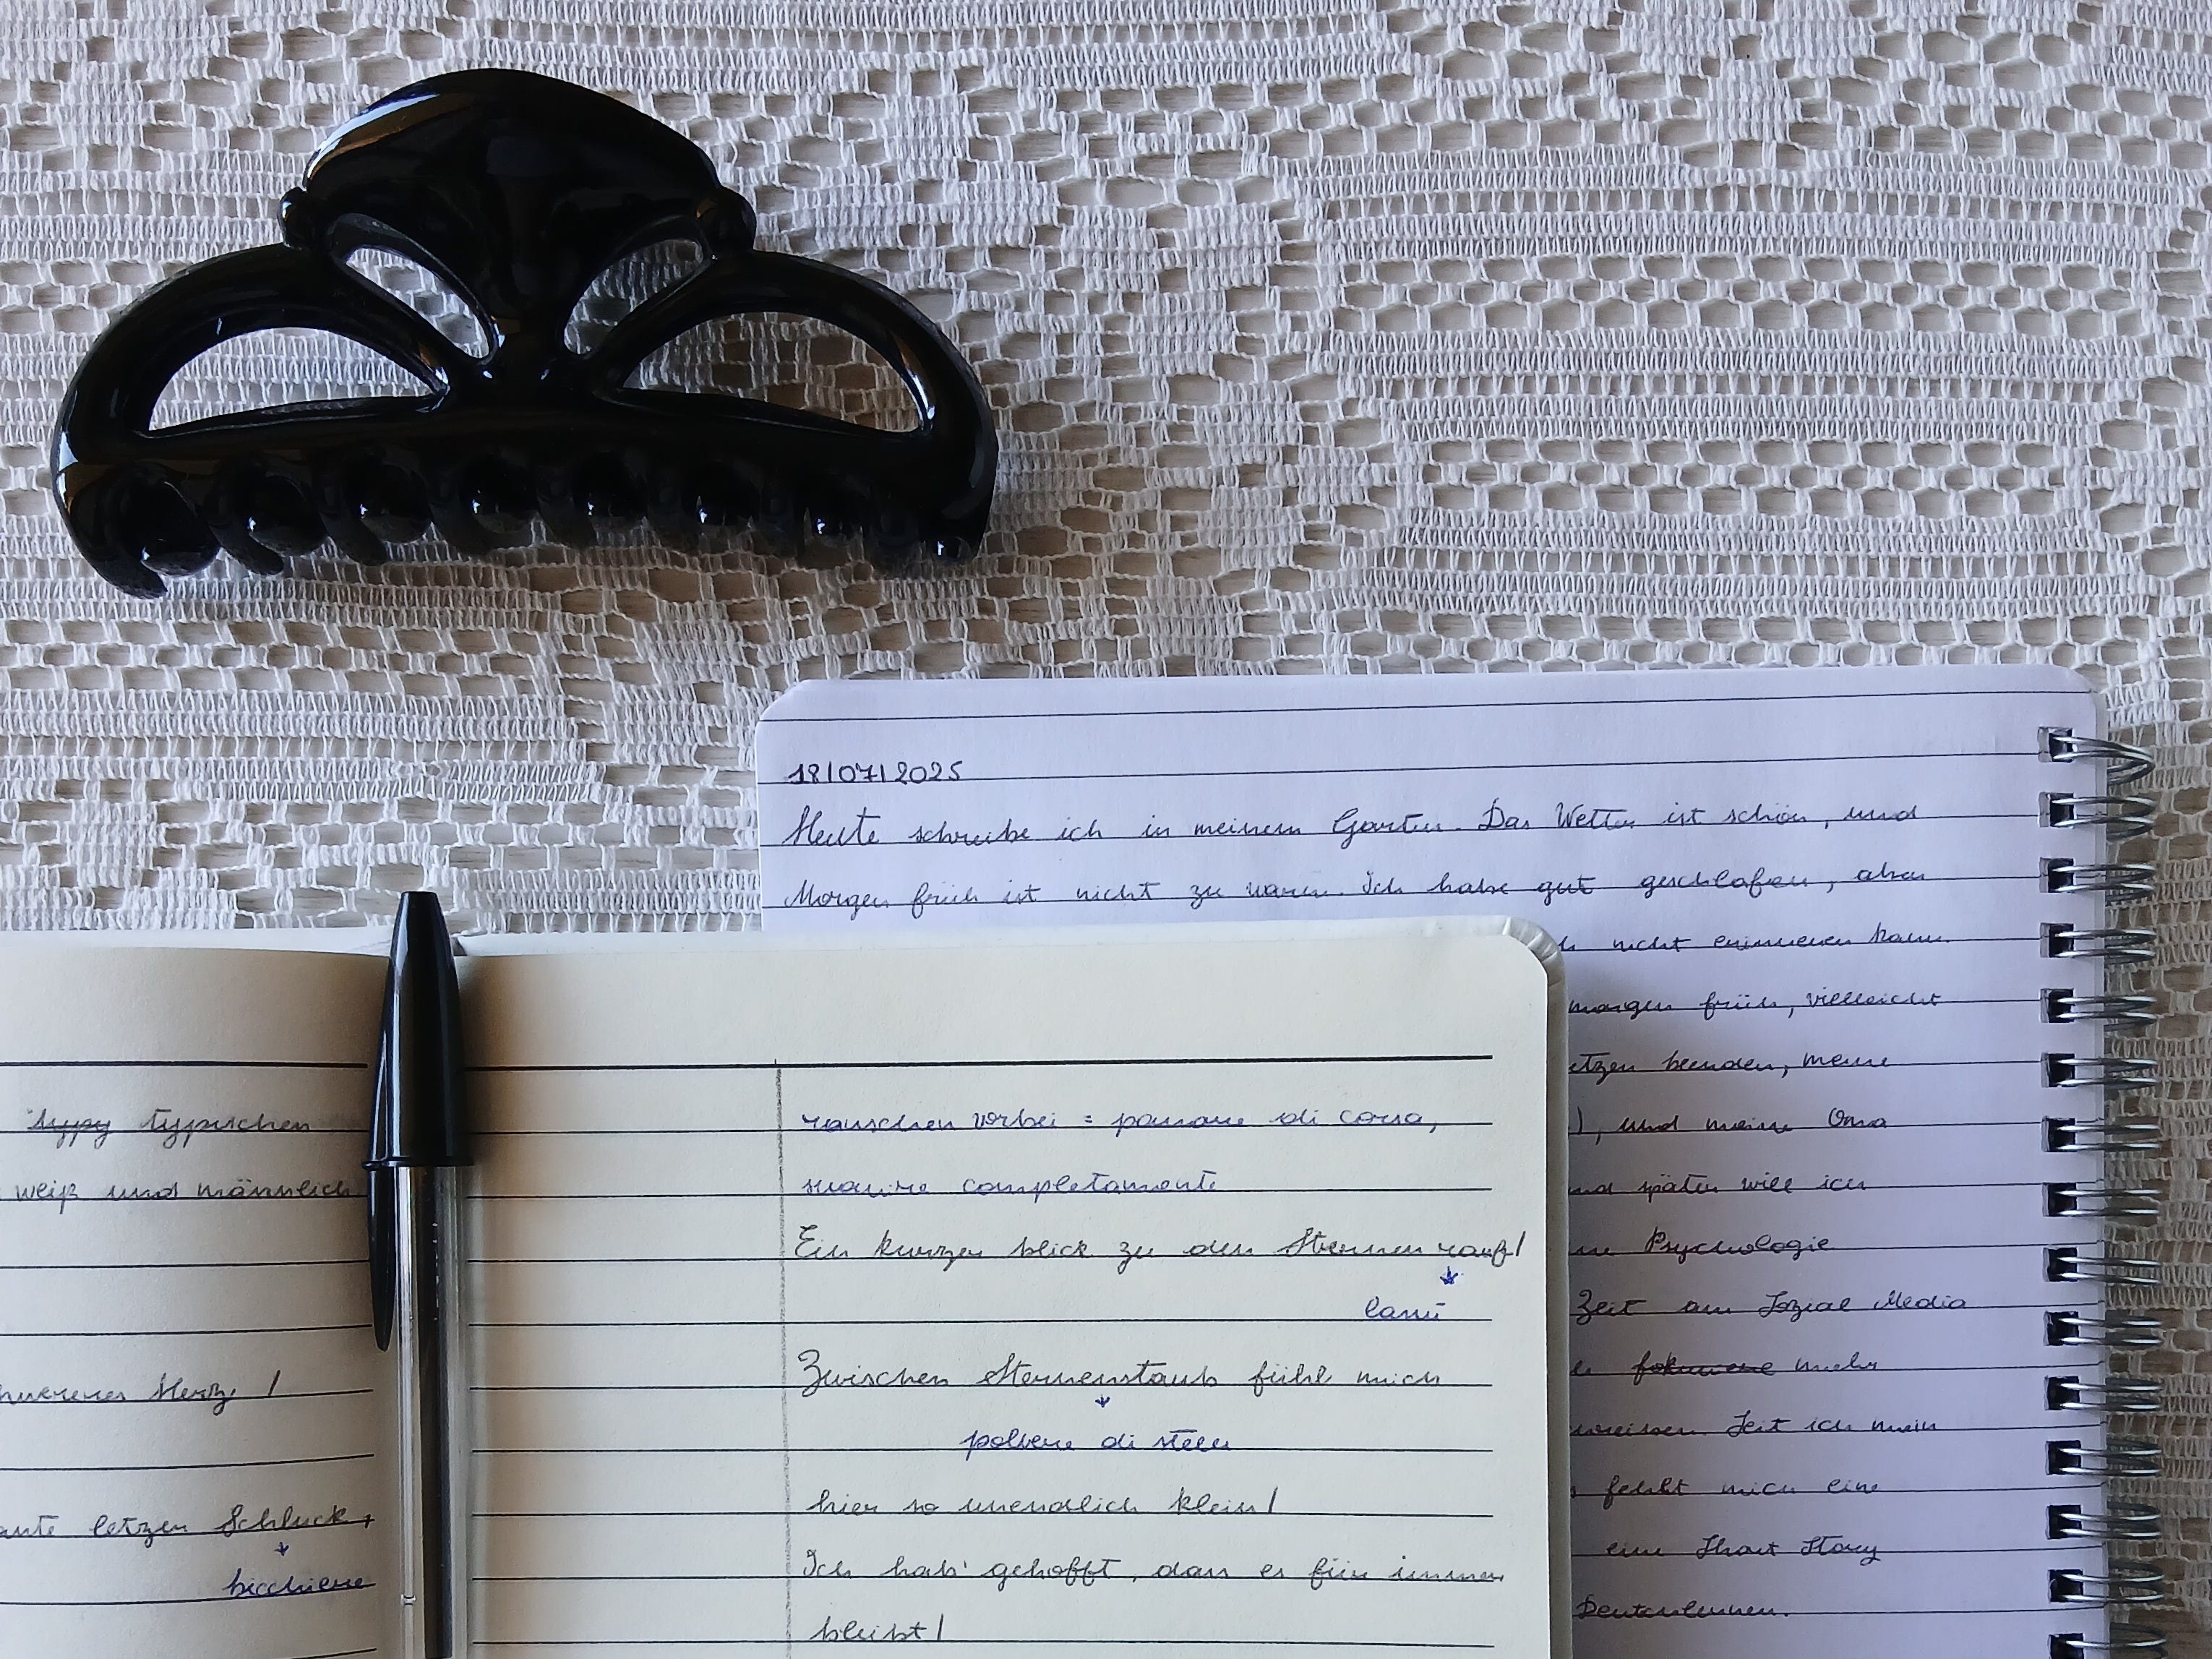 18/07/2025
Heute schreibe ich in meinem Garten. Das Wetter ist schön, und
Morgen früh ist nicht zu warm. Ich habe gut geschlafen, aber
nicht erinneren kann.
morgen früh, vielleicht
etzen beenden, meine
), und meine Oma
und später will ich
Psychologie
Zeit am Sozial Media
mehr
Seit ich mein
fehlt mich eine
eine Short Story
Deutschlernen.
typy typischen
weiß und männlich
Herz. /
letzen Schluck,
bicchiere
rauschen vorbei = passare di corsa,
svanire completamente
Ein kurzer blick zu den Sternen rauf/
lassù
Zwischen Sternenstaub fühl mich
polvere di stelle
hier so unendlich klein/
Ich hab' gehofft, dass es für immer
bleibt/